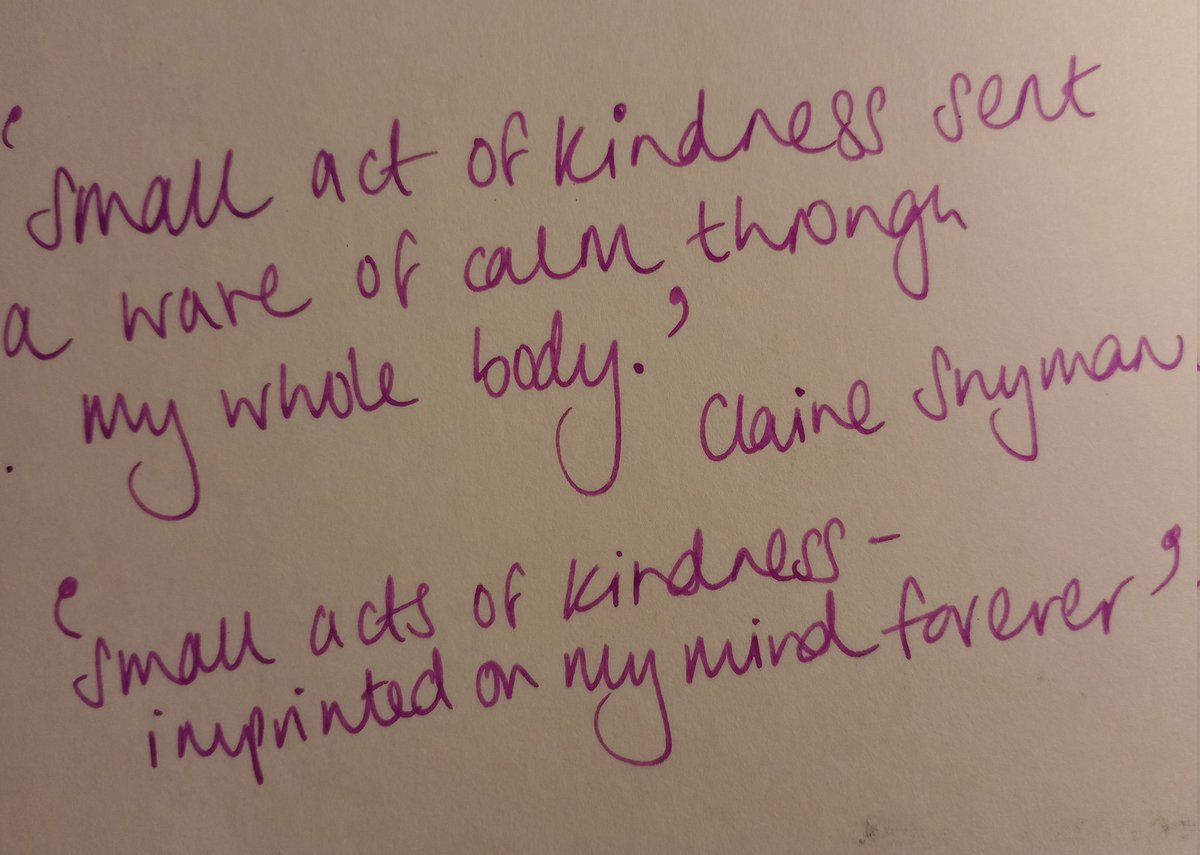 'small act of kindness sent
a wave of calm through
my whole body.'
Claire Snyman
'small acts of kindness -
imprinted on my mind forever'